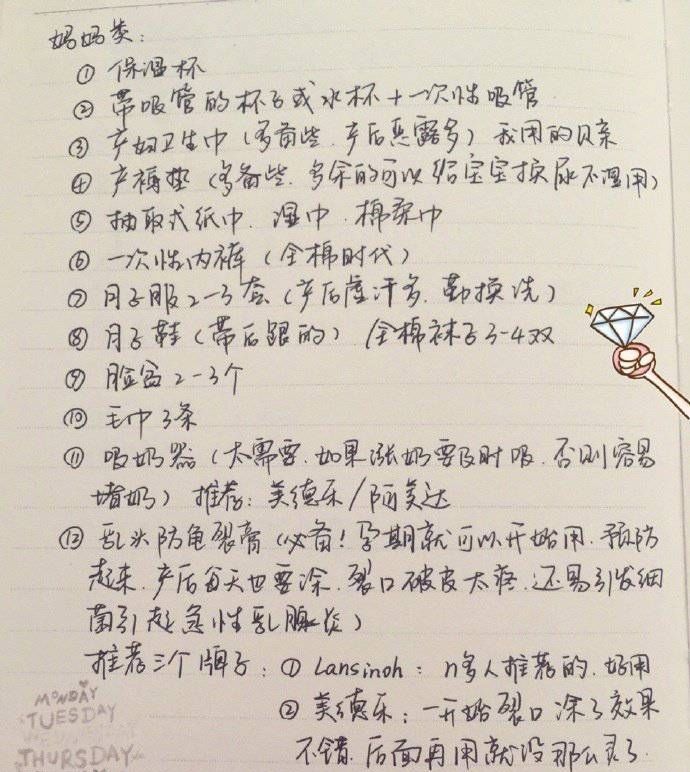 妈妈类:
① 保温杯
② 带吸管的杯子或水杯+一次性吸管
③ 产妇卫生巾(多备些.产后恶露多)我用的贝亲
④ 产褥垫(多备些.多余的可以给宝宝换尿不湿用)
⑤ 抽取式纸巾.湿巾.棉柔巾
⑥ 一次性内裤(全棉时代)
⑦ 月子服2-3套(产后虚汗多.勤换洗)
⑧ 月子鞋(带后跟的) 全棉袜子3-4双
⑨ 脸盆2-3个
⑩ 毛巾3条
⑪ 吸奶器(太需要.如果涨奶要及时吸.否则容易
堵奶)推荐:美德乐/阿美达
⑫ 乳头防龟裂膏(必备!孕期就可以开始用.预防
起来.产后每天也要涂.裂口破皮太疼.还易引发细
菌引起急性乳腺炎)
推荐三个牌子:① Lansinoh:n多人推荐的.好用
② 美德乐:一开始裂口涂了效果
不错.后面再用就没那么灵了.
MONDAY
TUESDAY
THURSDAY